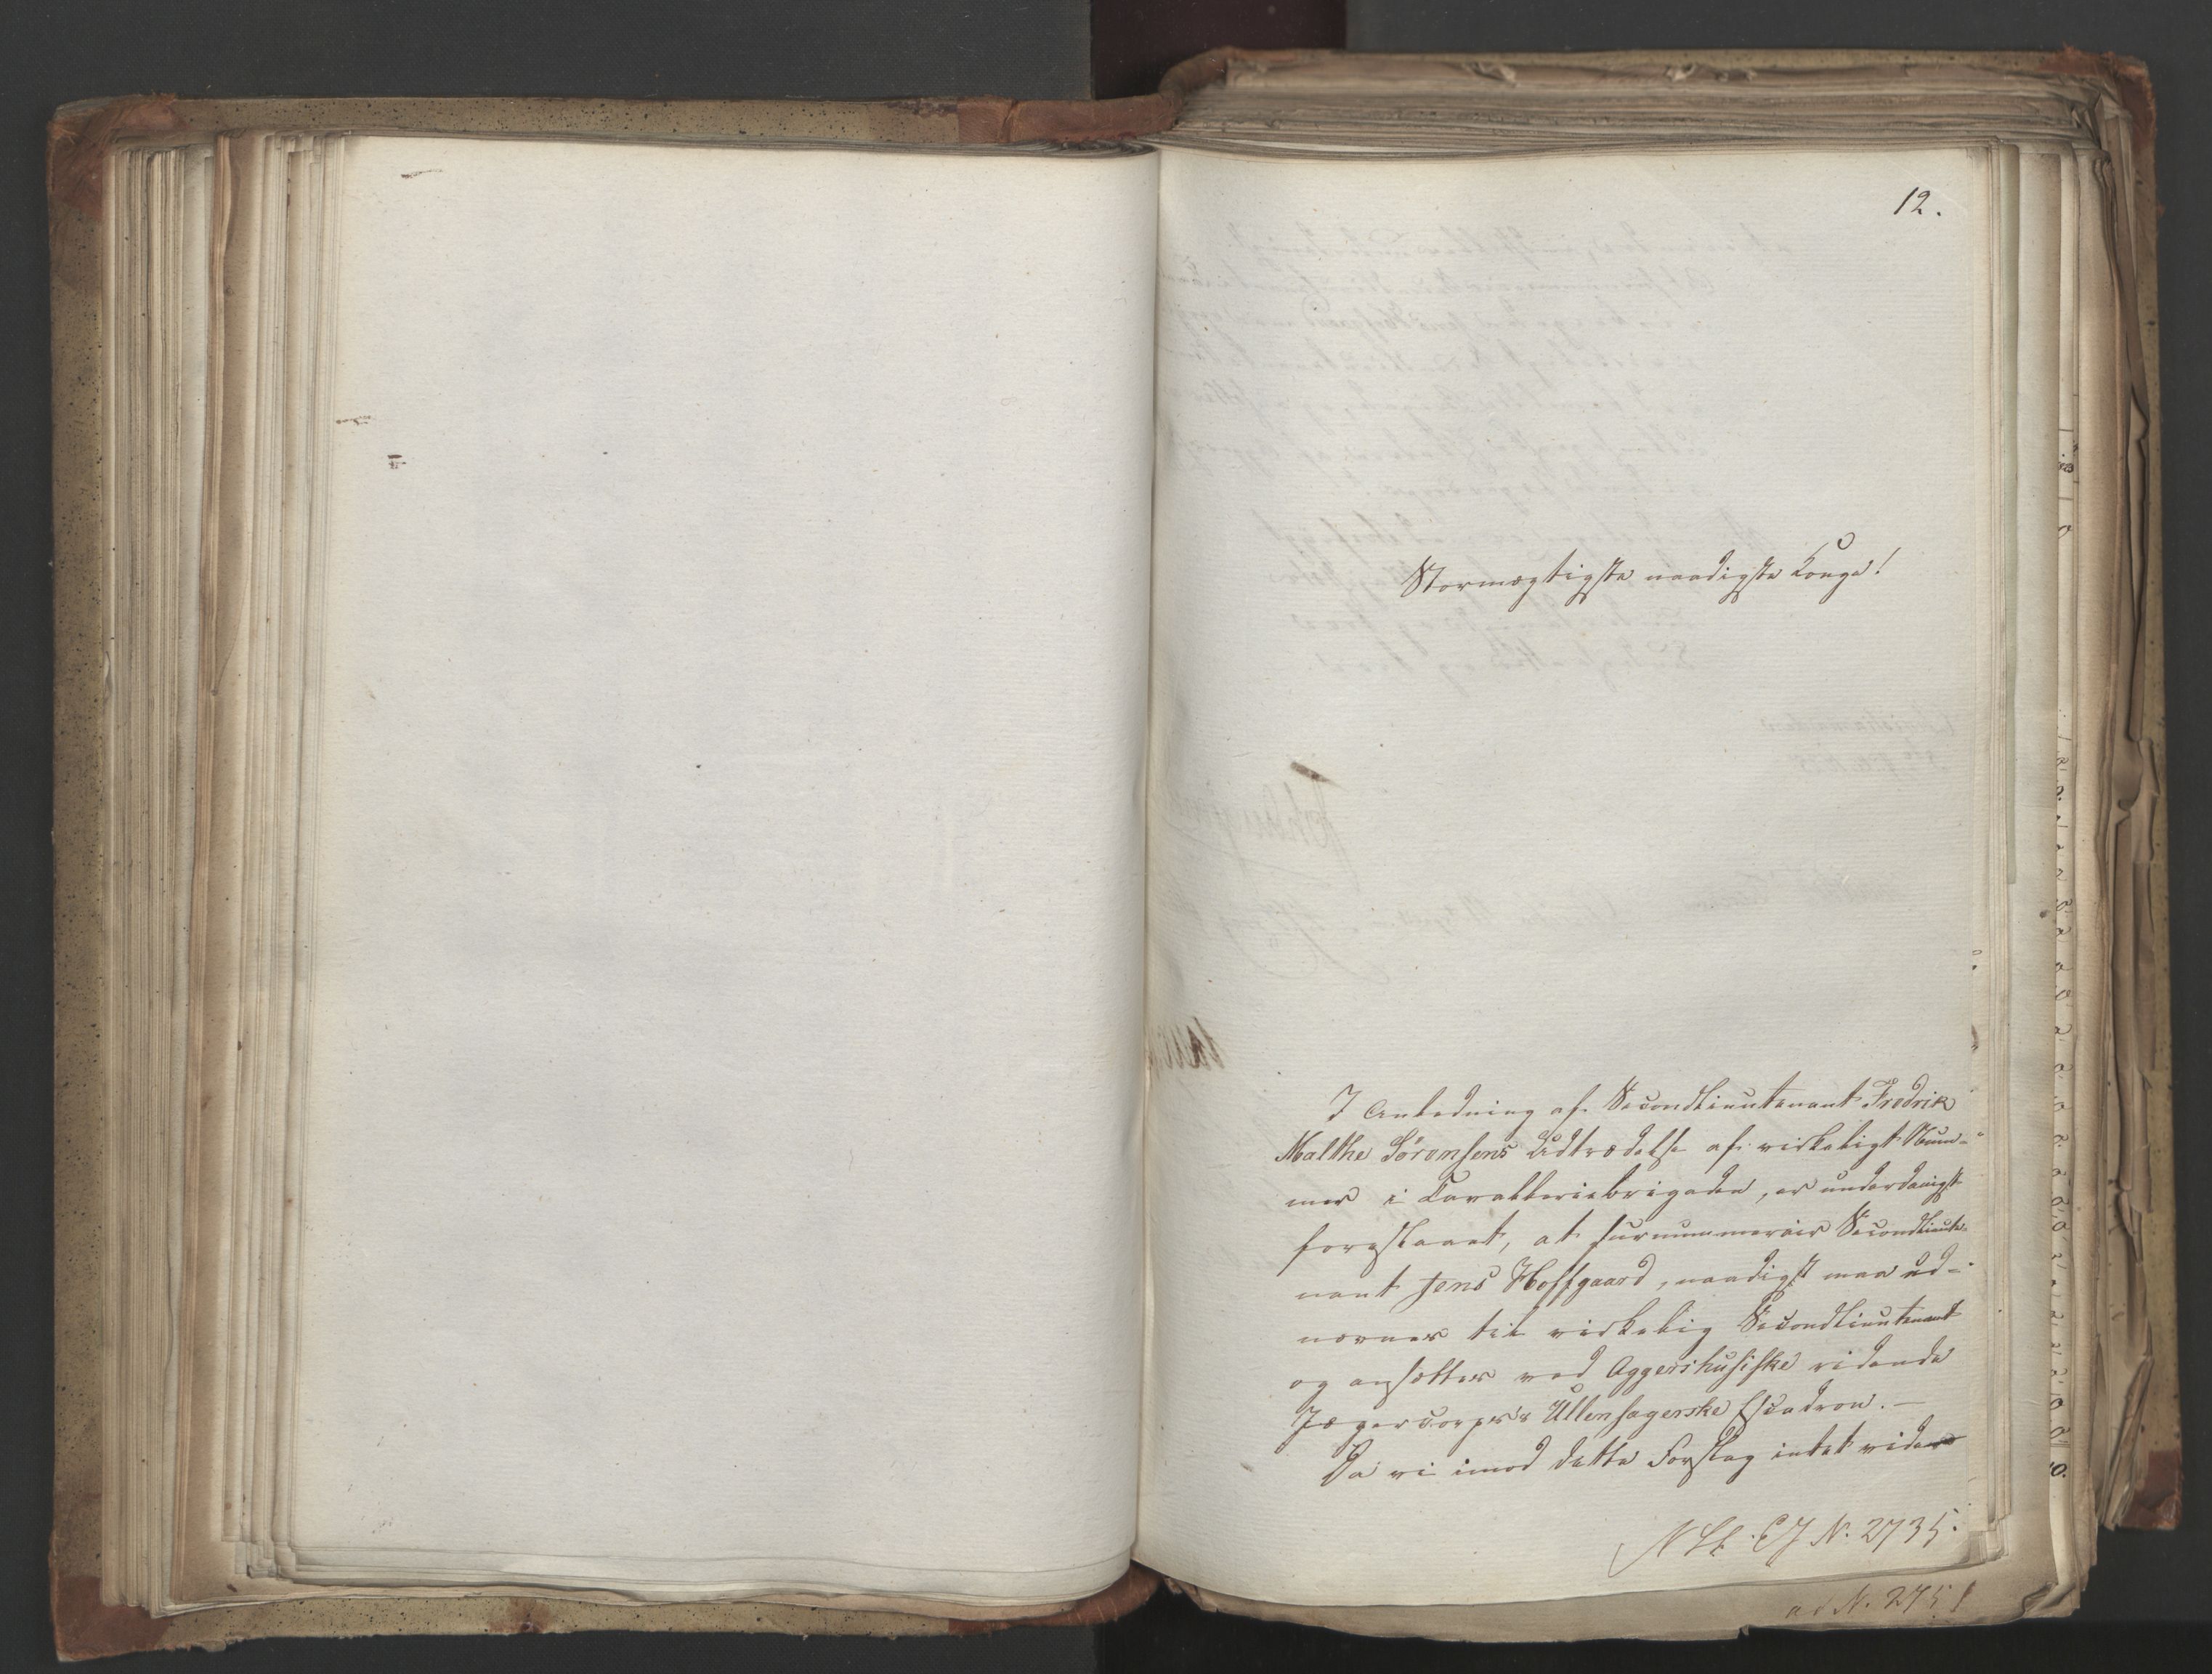 12.
Stormægtigste naadigste Konge!
I Anledning af Secondlieutenant Fredrik
Malthe Sørensens Udtrædelse af virkeligt Num-
mer i Cavalleriebrigaden, er underdanigst
foreslaaet, at surnummerair Secondlieute-
nant Jens Hoffgaard, naadigst maa ud-
nævnes til virkelig Secondlieutenant
og ansættes ved Aggershusiske ridende
Jægercorps's Ullensagerske Escadron. —
Da vi imod dette Forslag intet videre
N. 2735.
ad N. 275